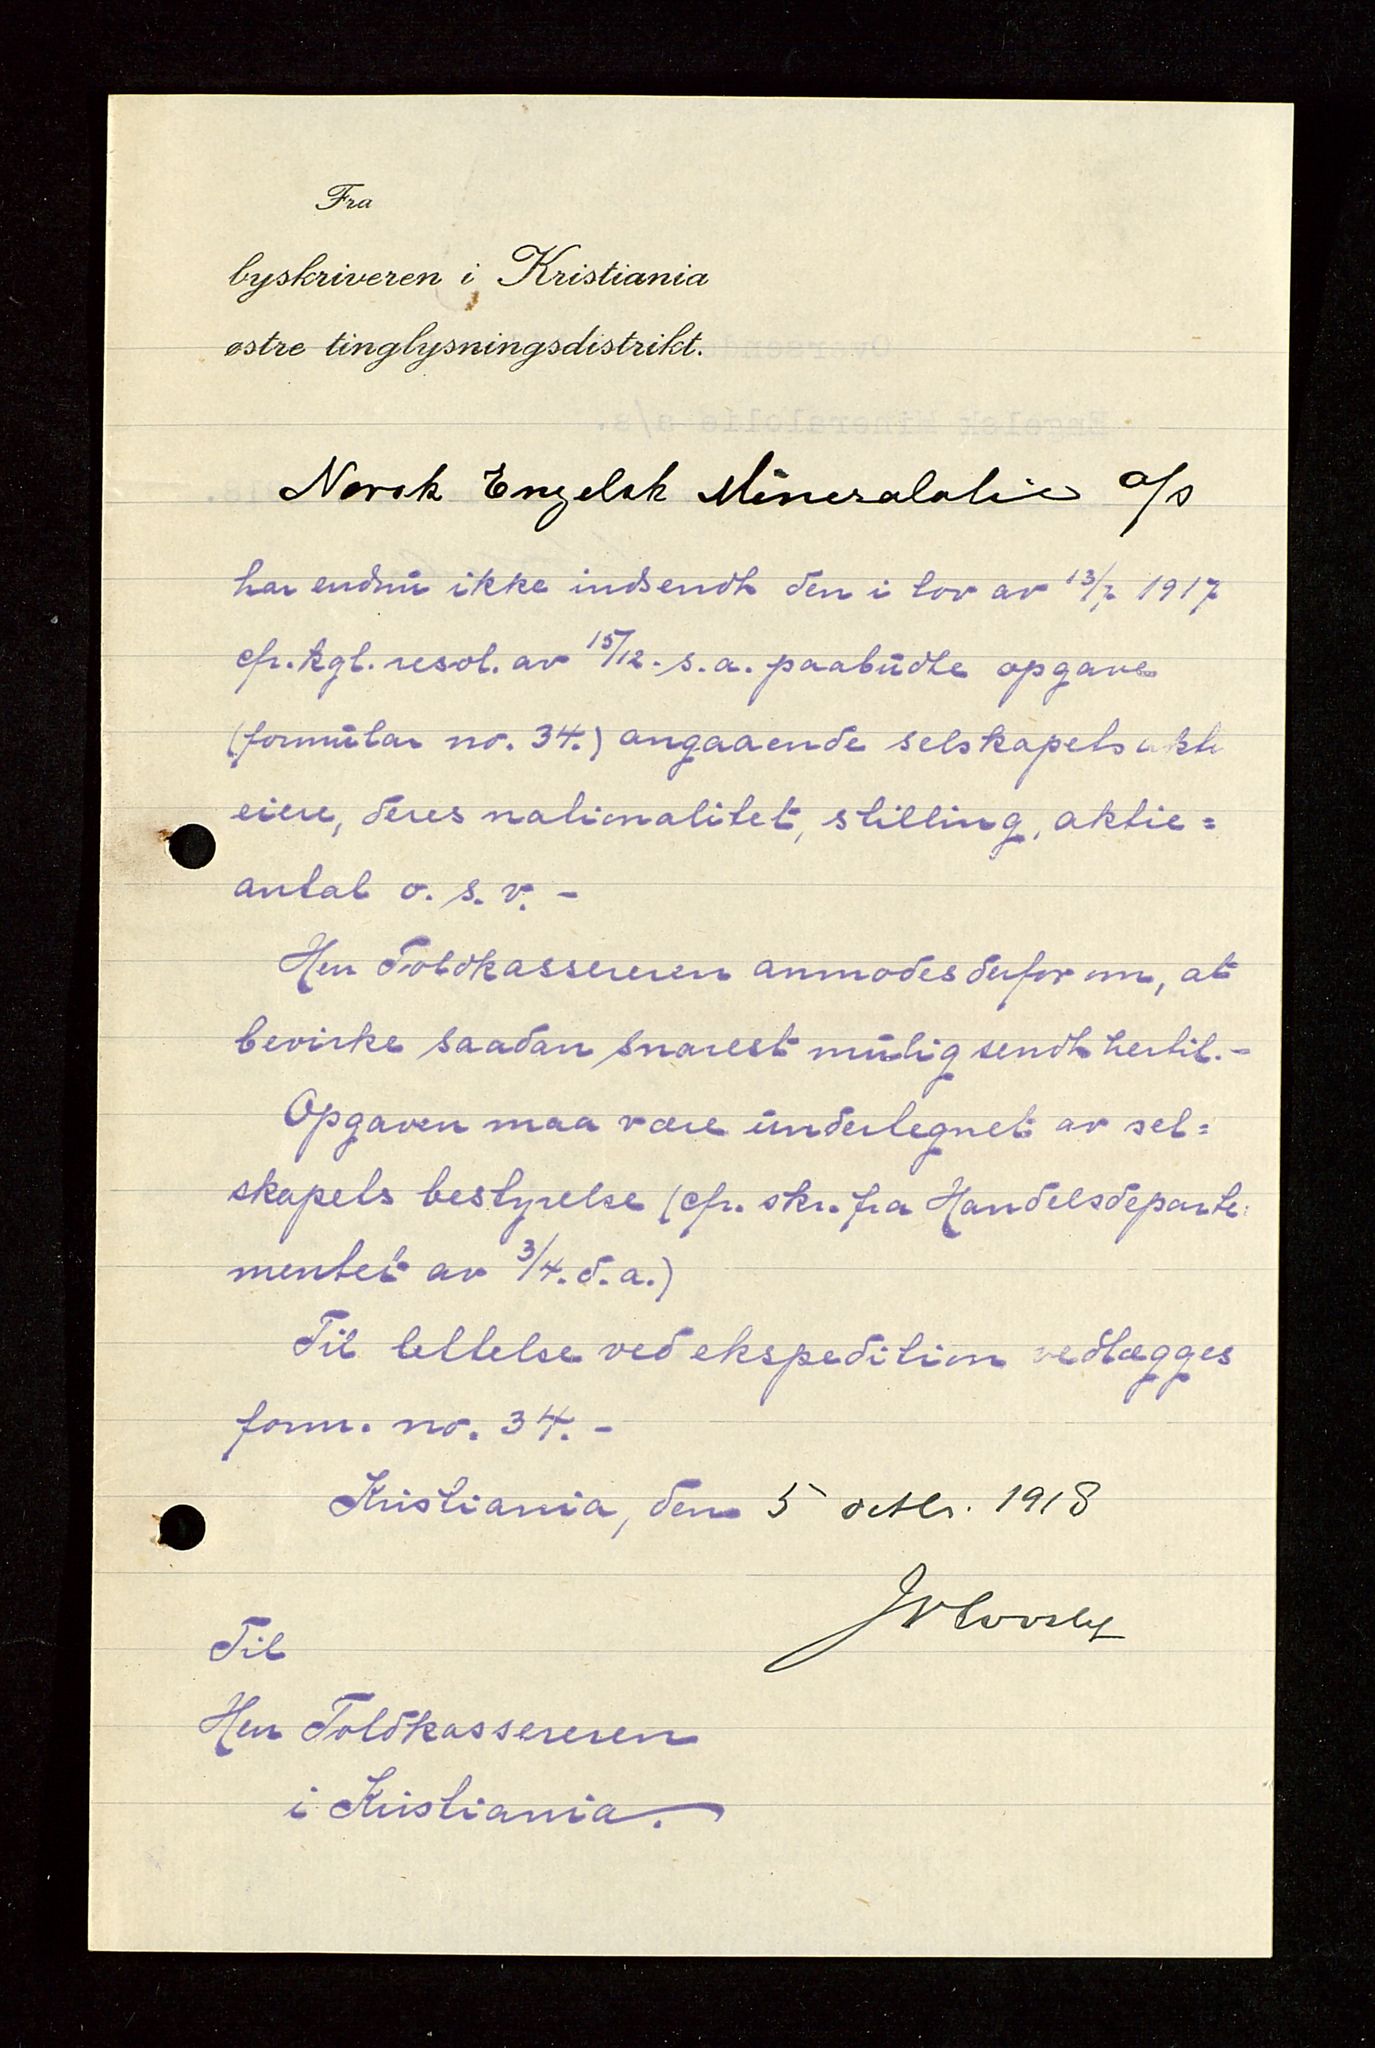 Fra
byskriveren i Kristiania
østre tinglysningsdistrikt.
Norsk Engelsk Mineralolie a/s
har endnu ikke indsendt den i lov av 13/7 1917
cfr. kgl. resol. av 15/12. s. a. paabudte opgave
(formular no. 34.) angaaende selskapets aktie
eiere, deres nationalitet, stilling, aktie=
antal o. s. v. -
Herr Toldkassereren anmodes derfor om, at
bevirke saadan snarest mulig sendt hertil. -
Opgaven maa være undertegnet av sel=
skapets bestyrelse (cfr. skr. fra Handelsdeparte=
mentet av 3/4. d. a.)
Til lettelse ved ekspedition vedlægges
form. no. 34. -
Kristiania, den 5 octbr. 1918
Til
Herr Toldkassereren
i Kristiania.